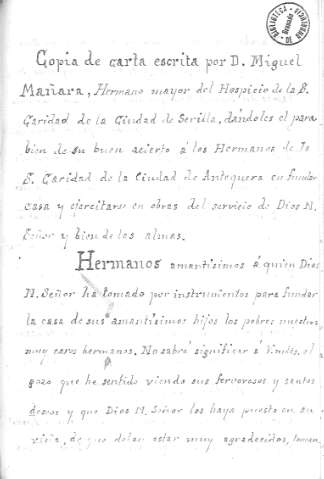 BIBLIOTECA DE ANDALUCIA
Copia de carta escrita por D. Miguel
Mañara, Hermano mayor del Hospicio de la S.
Caridad de la Ciudad de Sevilla, dándoles el para
bien de su buen acierto á los Hermanos de la
S. Caridad de la Ciudad de Antequera en fundar
casa y ejercitarse en obras del servicio de Dios N.
Señor y bien de las almas.
Hermanos amantísimos á quien Dios
N. Señor ha tomado por instrumentos para fundar
la casa de sus amantísimos hijos los pobres nuestros
muy caros hermanos. No sabré significar á Vmdes. el
gozo que he sentido viendo sus fervorosos y santos
deseos y que Dios N. Señor los haya puesto en su
viña, de que deben estar muy agradecidos,